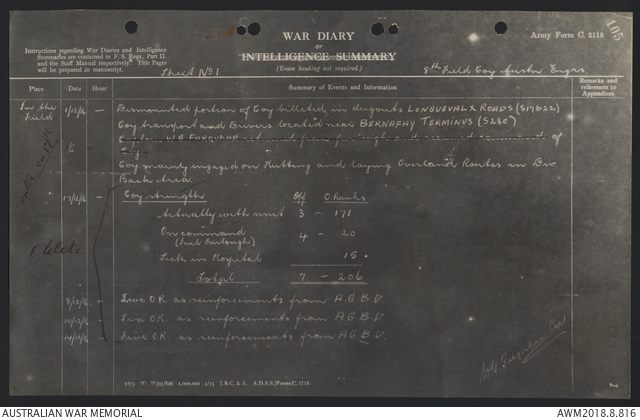 WAR DIARY
or
INTELLIGENCE SUMMARY
(Erase heading not required.)
Army Form C. 2118
105
Instructions regarding War Diaries and Intelligence
Summaries are contained in F. S. Regs., Part II.
and the Staff Manual respectively. Title Pages
will be prepared in manuscript.
Sheet No 1
8th Field Coy Austn Engrs
Place Date Hour Summary of Events and Information Remarks and references to Appendices
In the Field 1/12/16 — Dismounted portion of Coy billeted in dugouts LONGUEVAL X ROADS (S17b22)
Coy transport and Drivers located near BERNAFAY TERMINUS (S23c)
of
Coy
Coy mainly engaged on Hutting and laying Overland Routes in Div.
Back Area.
17/12/16 — Coy strength Off O.Ranks
Actually with unit 3 — 171
On command 4 — 20
(Incl. furlough)
Sick in Hospital 15
Total 7 — 206
delete
8/12/16 — Two O.R. as reinforcements from A.G.B.D.
10/12/16 — Six O.R. as reinforcements from A.G.B.D.
14/12/16 — Five O.R. as reinforcements from A.G.B.D.
1875 Wt. W593/826 1,000,000 4/15 J.B.C. & A. A.D.S.S./Forms/C. 2118.
AUSTRALIAN WAR MEMORIAL
AWM2018.8.816